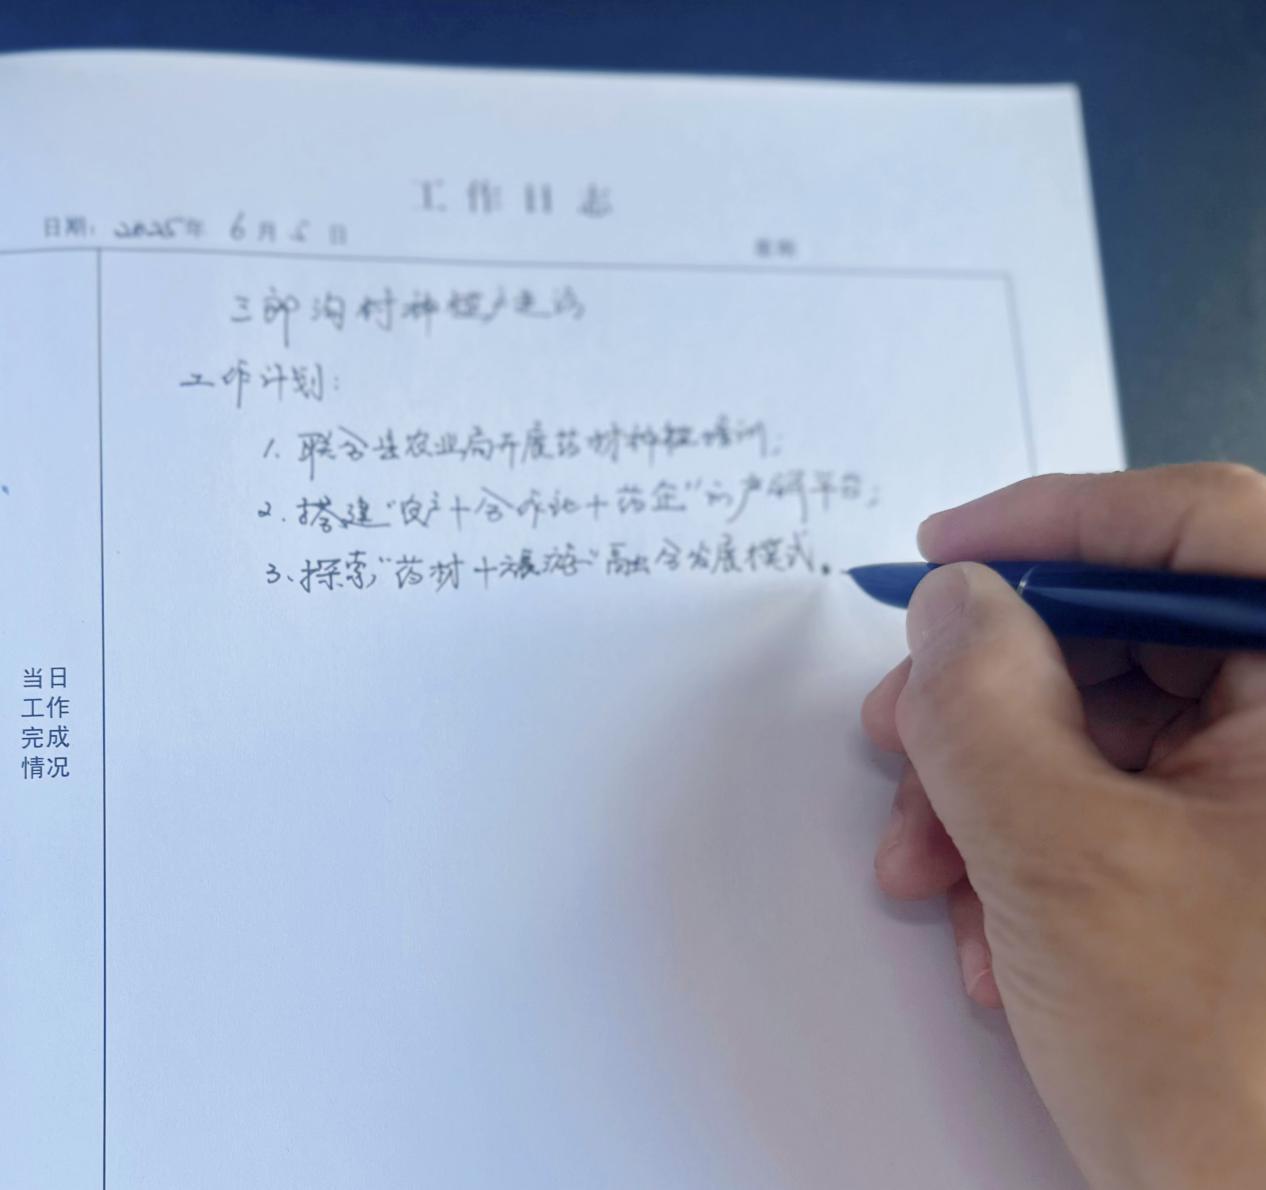 工作日志
日期: 2025年 6月 5 日
三郎沟村种植户走访
工作计划:
1. 联合县农业局开展药材种植培训;
2. 搭建“农户+合作社+药企”的产销平台;
3、探索“药材+旅游”融合发展模式。
当日
工作
完成
情况